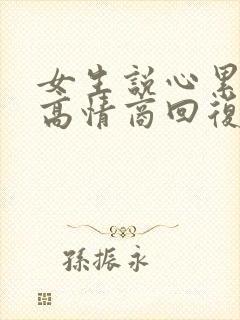 女生説心累
高情商回復
孫振永